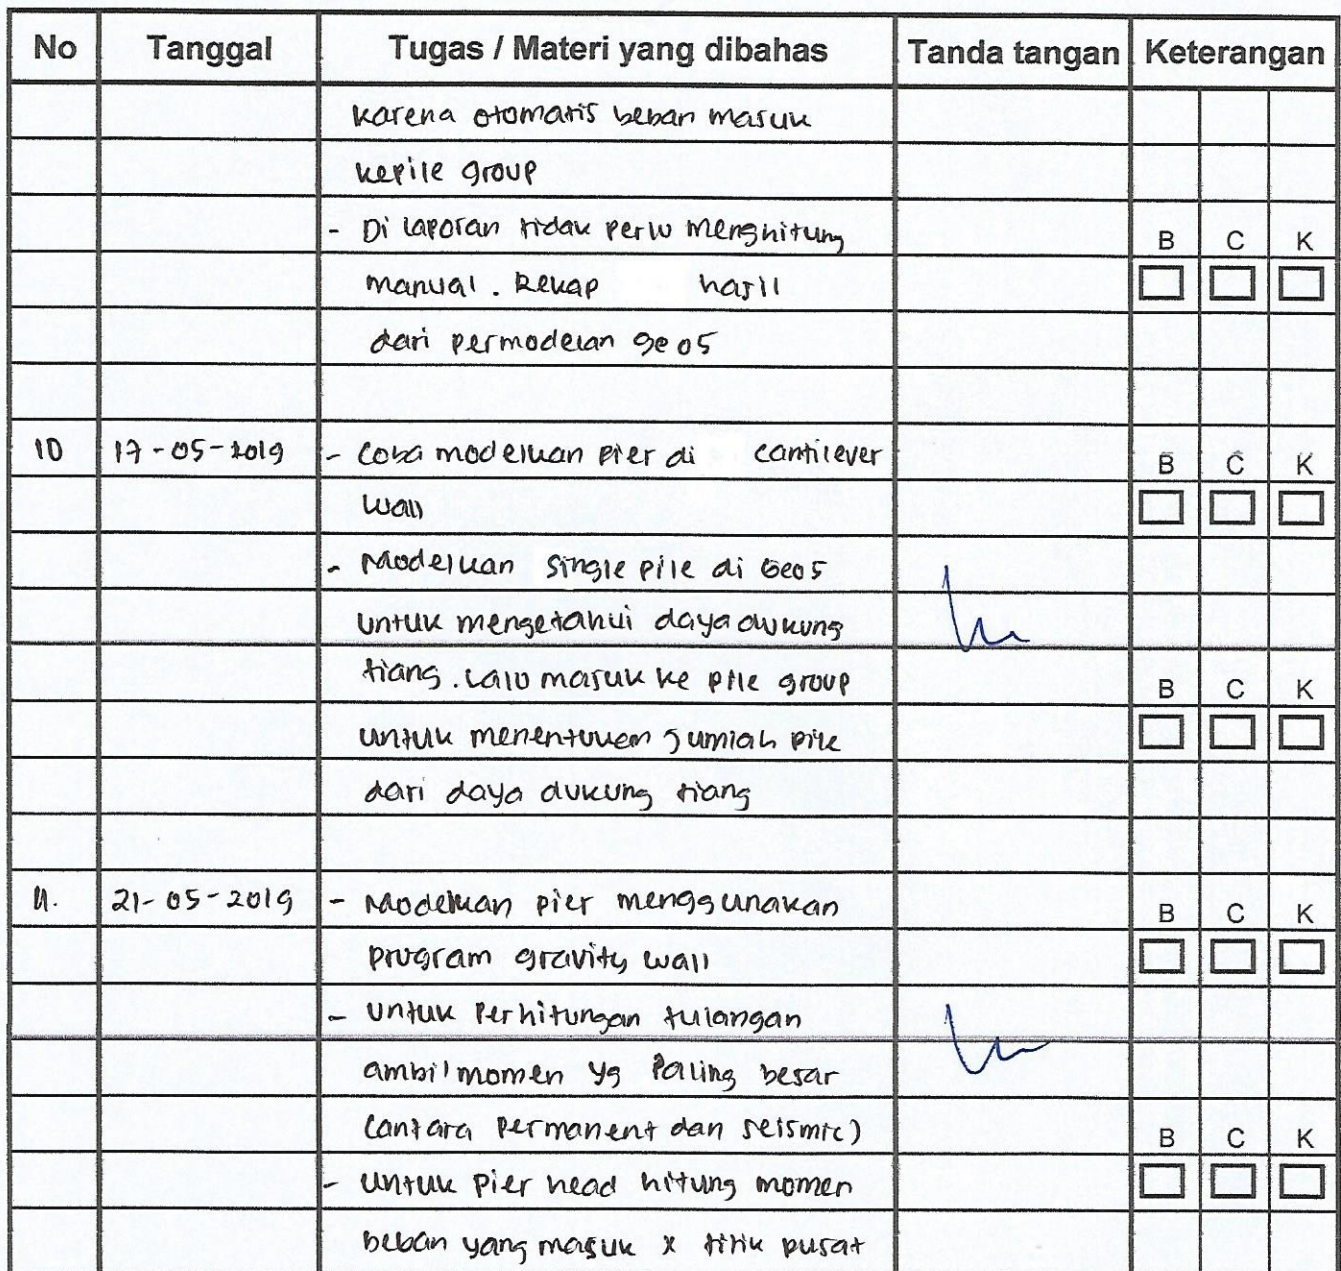 No Tanggal Tugas / Materi yang dibahas Tanda tangan Keterangan
karena otomatis beban masuk
kepile group
- Di laporan tidak perlu menghitung B C K
manual. Rekap hasil
dari permodelan geo5
10 17-05-2019 - Coba modelkan pier di cantilever B C K
wall
- Modelkan single pile di Geo5
untuk mengetahui daya dukung
tiang. Lalu masuk ke pile group B C K
untuk menentukan jumlah pile
dari daya dukung tiang
11. 21-05-2019 - Modelkan pier menggunakan B C K
program gravity wall
- untuk perhitungan tulangan
ambil momen yg paling besar
(antara permanent dan seismic) B C K
- untuk pier head hitung momen
beban yang masuk x titik pusat